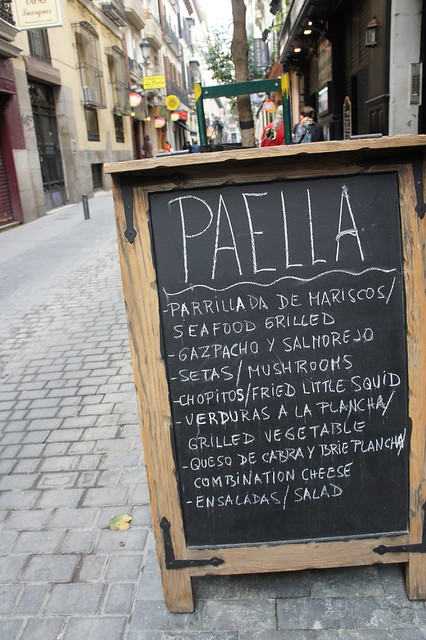 TAPAS
PAELLA
-PARRILLADA DE MARISCOS/
SEAFOOD GRILLED
-GAZPACHO Y SALMOREJO
-SETAS/MUSHROOMS
-CHOPITOS/FRIED LITTLE SQUID
-VERDURAS A LA PLANCHA/
GRILLED VEGETABLE
-QUESO DE CABRA Y BRIE PLANCHA/
COMBINATION CHEESE
-ENSALADAS/SALAD